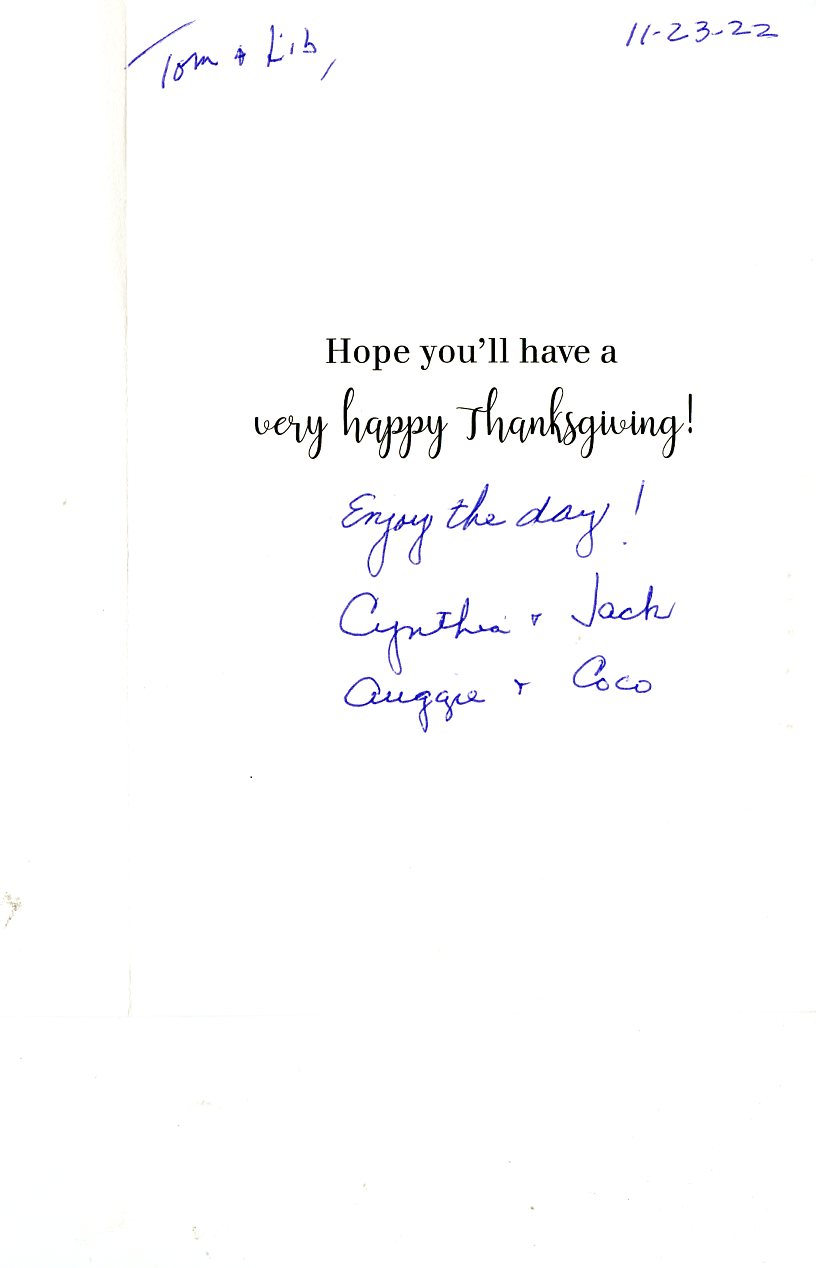 Tom + Lib,
11-23-22
Hope you'll have a
very happy Thanksgiving!
Enjoy the day!
Cynthia + Jack
Auggie + Coco